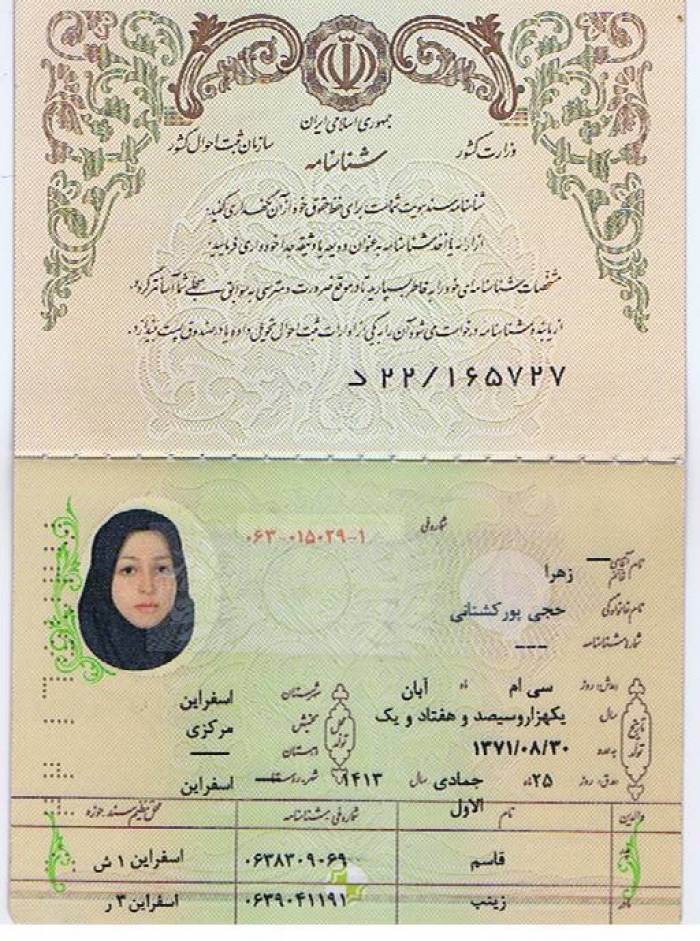 جمهوری اسلامی ایران
وزارت کشور
سازمان ثبت احوال کشور
شناسنامه
شناسنامه سند هویت شماست برای حفظ حقوق خود از آن نگهداری کنید.
از ارایه یا اخذ شناسنامه به عنوان ودیعه یا وثیقه جداً خودداری فرمایید.
مشخصات شناسنامه‌ای خود را به خاطر بسپارید تا در موقع ضرورت دسترسی به سوابق سجلی شما آسانتر گردد.
از یابنده شناسنامه درخواست می شود آن را به یکی از ادارات ثبت احوال تحویل داده یا در صندوق پست بیندازد.
۲۲/۱۶۵۷۲۷ د
شماره ملی ۰۶۳-۰۱۵۰۲۹-۱
نام آقای/خانم زهرا
نام خانوادگی حجی پورکشتانی
شماره شناسنامه ---
تاریخ تولد
هـ.ش: روز سی ام ماه آبان
سال یکهزاروسیصد و هفتاد و یک
به عدد ۱۳۷۱/۰۸/۳۰
هـ.ق: روز ۲۵ ماه جمادی الاول سال ۱۴۱۳
محل تولد
شهرستان اسفراین
بخش مرکزی
دهستان —
شهر، روستا اسفراین
والدین نام شماره ملی / شناسنامه محل تنظیم سند، حوزه
پدر قاسم ۰۶۳۸۳۰۹۰۶۹ اسفراین ۱ ش
مادر زینب ۰۶۳۹۰۴۱۱۹۱ اسفراین ۳ ر